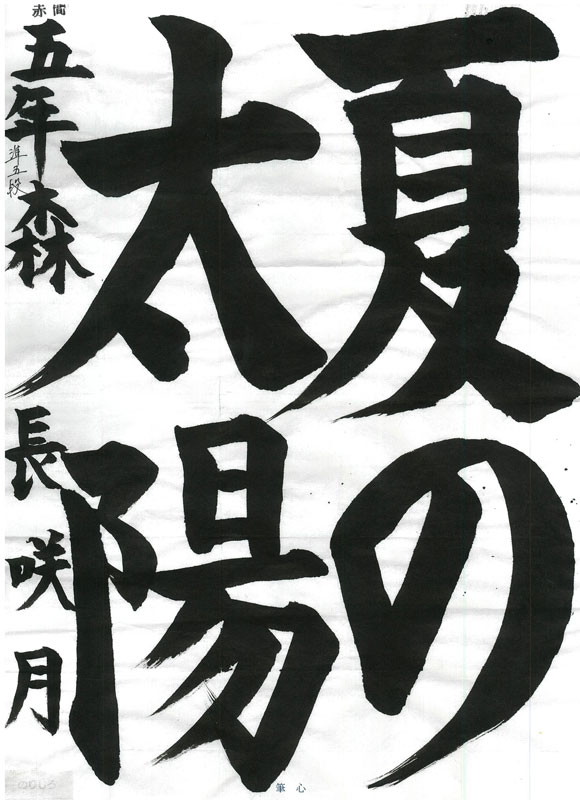 夏の
太陽
赤間
五年 森長咲月
準五段
筆心
のりしろ